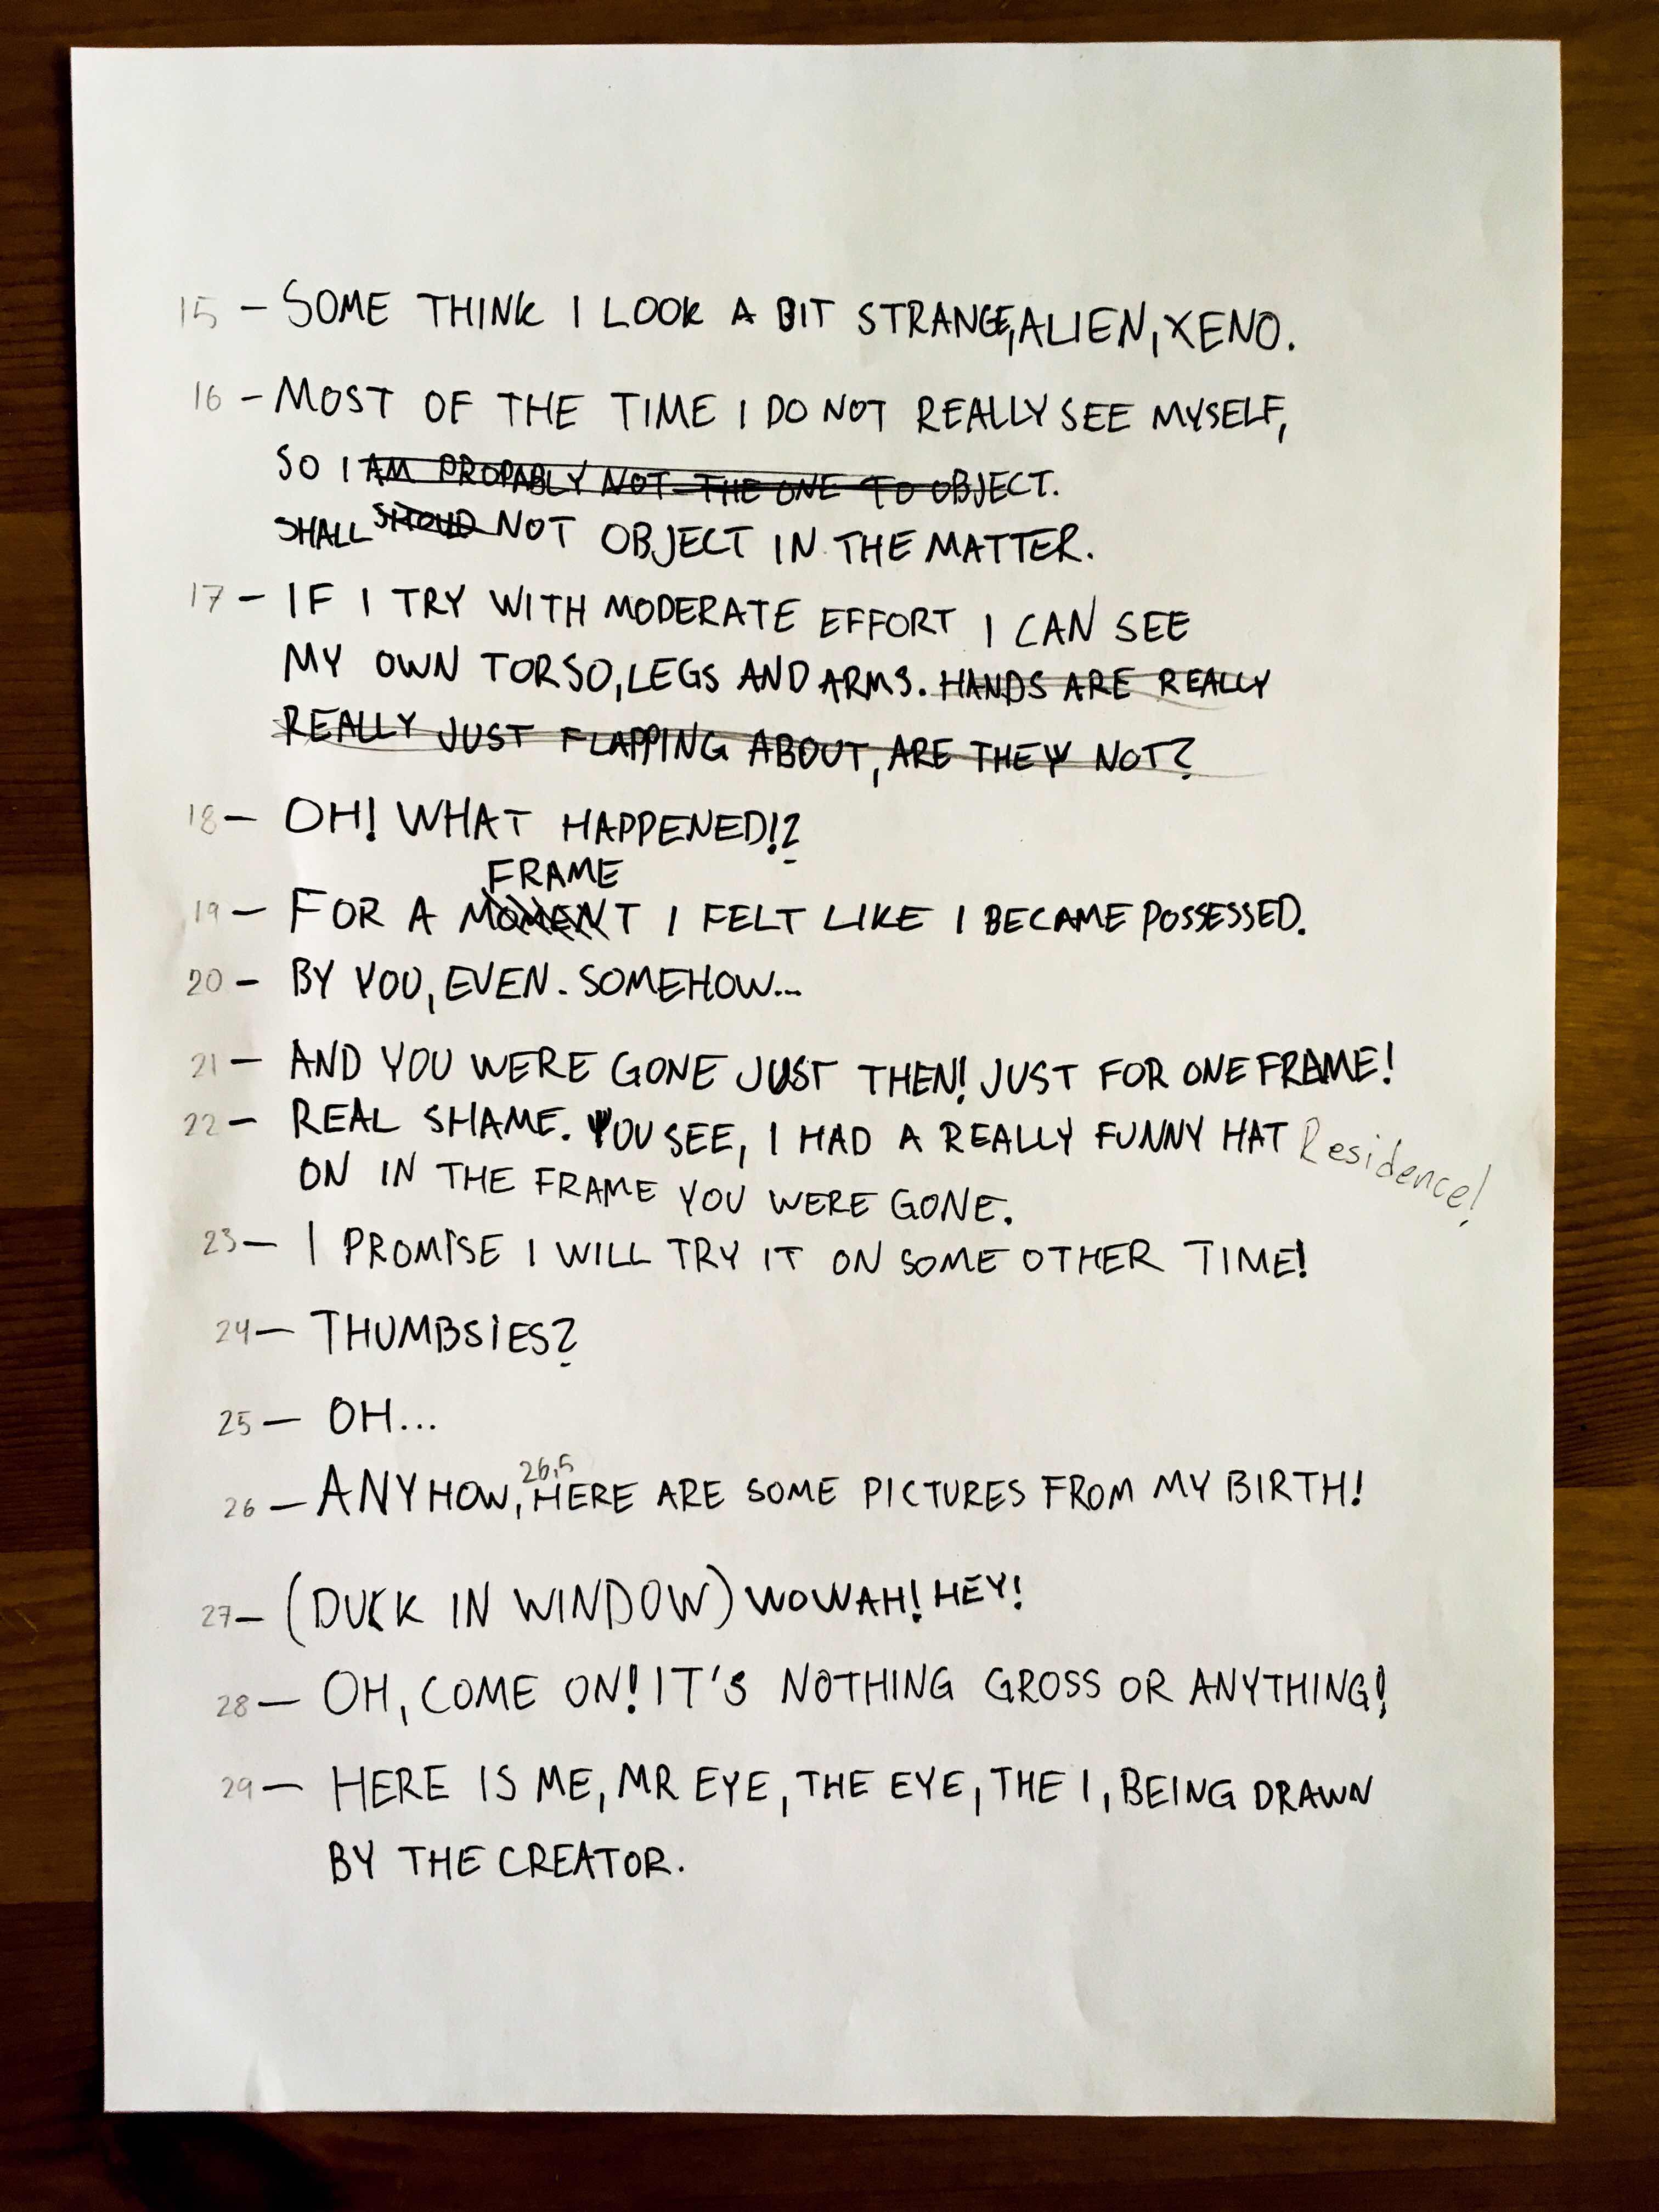 15 - SOME THINK I LOOK A BIT STRANGE, ALIEN, XENO.
16 - MOST OF THE TIME I DO NOT REALLY SEE MYSELF,
SO I AM PROPABLY NOT THE ONE TO OBJECT.
SHALL SHOULD NOT OBJECT IN THE MATTER.
17 - IF I TRY WITH MODERATE EFFORT I CAN SEE
MY OWN TORSO, LEGS AND ARMS. HANDS ARE REALLY
REALLY JUST FLAPPING ABOUT, ARE THEY NOT?
18 - OH! WHAT HAPPENED!?
FRAME
19 - FOR A MOMENT I FELT LIKE I BECAME POSSESSED.
20 - BY YOU, EVEN. SOMEHOW...
21 - AND YOU WERE GONE JUST THEN! JUST FOR ONE FRAME!
22 - REAL SHAME. YOU SEE, I HAD A REALLY FUNNY HAT Residence!
ON IN THE FRAME YOU WERE GONE.
23 - I PROMISE I WILL TRY IT ON SOME OTHER TIME!
24 - THUMBSIES?
25 - OH...
26,5
26 - ANYHOW, HERE ARE SOME PICTURES FROM MY BIRTH!
27 - (DUCK IN WINDOW) WOWAH! HEY!
28 - OH, COME ON! IT'S NOTHING GROSS OR ANYTHING!
29 - HERE IS ME, MR EYE, THE EYE, THE I, BEING DRAWN
BY THE CREATOR.